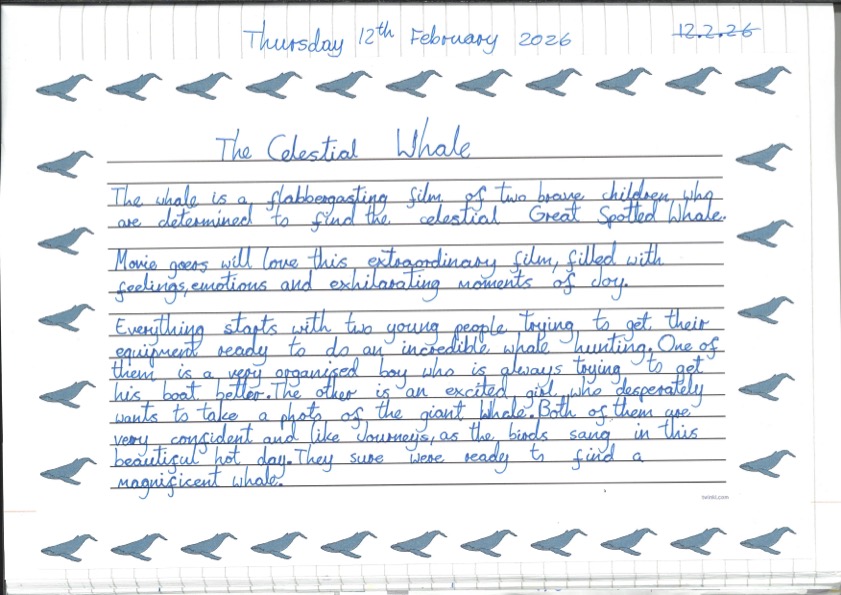 Thursday 12th February 2026
12.2.26
The Celestial Whale
The whale is a flabbergasting film of two brave children who
are determined to find the celestial Great Spotted Whale.
Movie goers will love this extraordinary film, filled with
feelings, emotions and exhilarating moments of Joy.
Everything starts with two young people trying to get their
equipment ready to do an incredible whale hunting. One of
them is a very organised boy who is always trying to get
his boat better. The other is an excited girl who desperately
wants to take a photo of the giant Whale. Both of them are
very confident and like Journeys, as the birds sang in this
beautiful hot day. They sure were ready to find a
magnificent whale.
twinkl.com